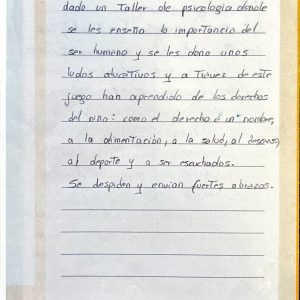 dado un Taller de psicología donde
se les enseño la importancia del
ser humano y se les dono unos
ludos educativos y a travez de este
juego han aprendido de los derechos
del niño: como el derecho a un nombre,
a la alimentación, a la salud, al descanso,
al deporte y a ser escuchados.
Se despiden y envian fuertes abrazos.